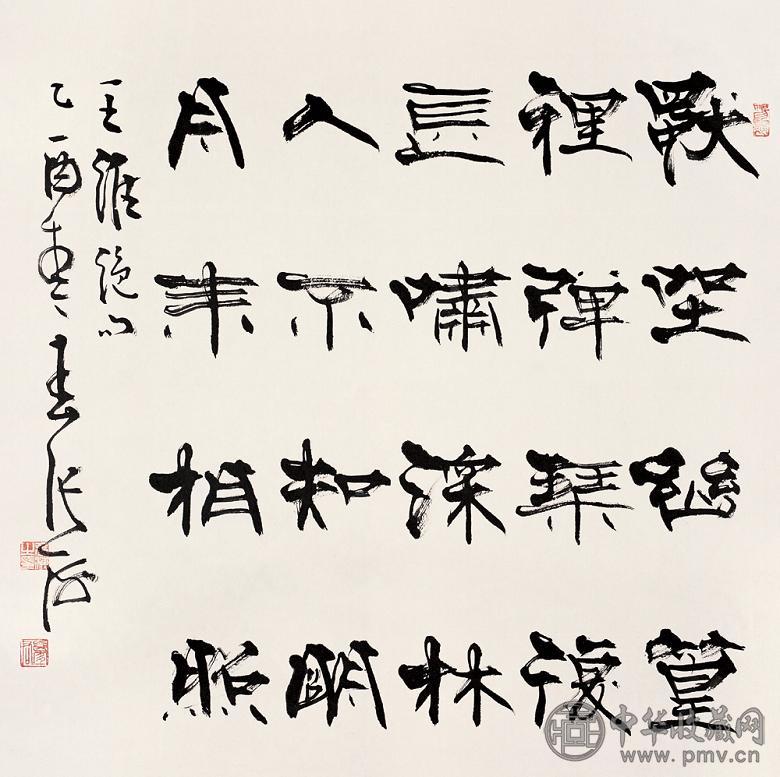 獨坐幽篁
裡彈琴復
長嘯深林
人不知明
月来相照
王維絕句
乙酉春
中华收藏网
www.pmv.cn